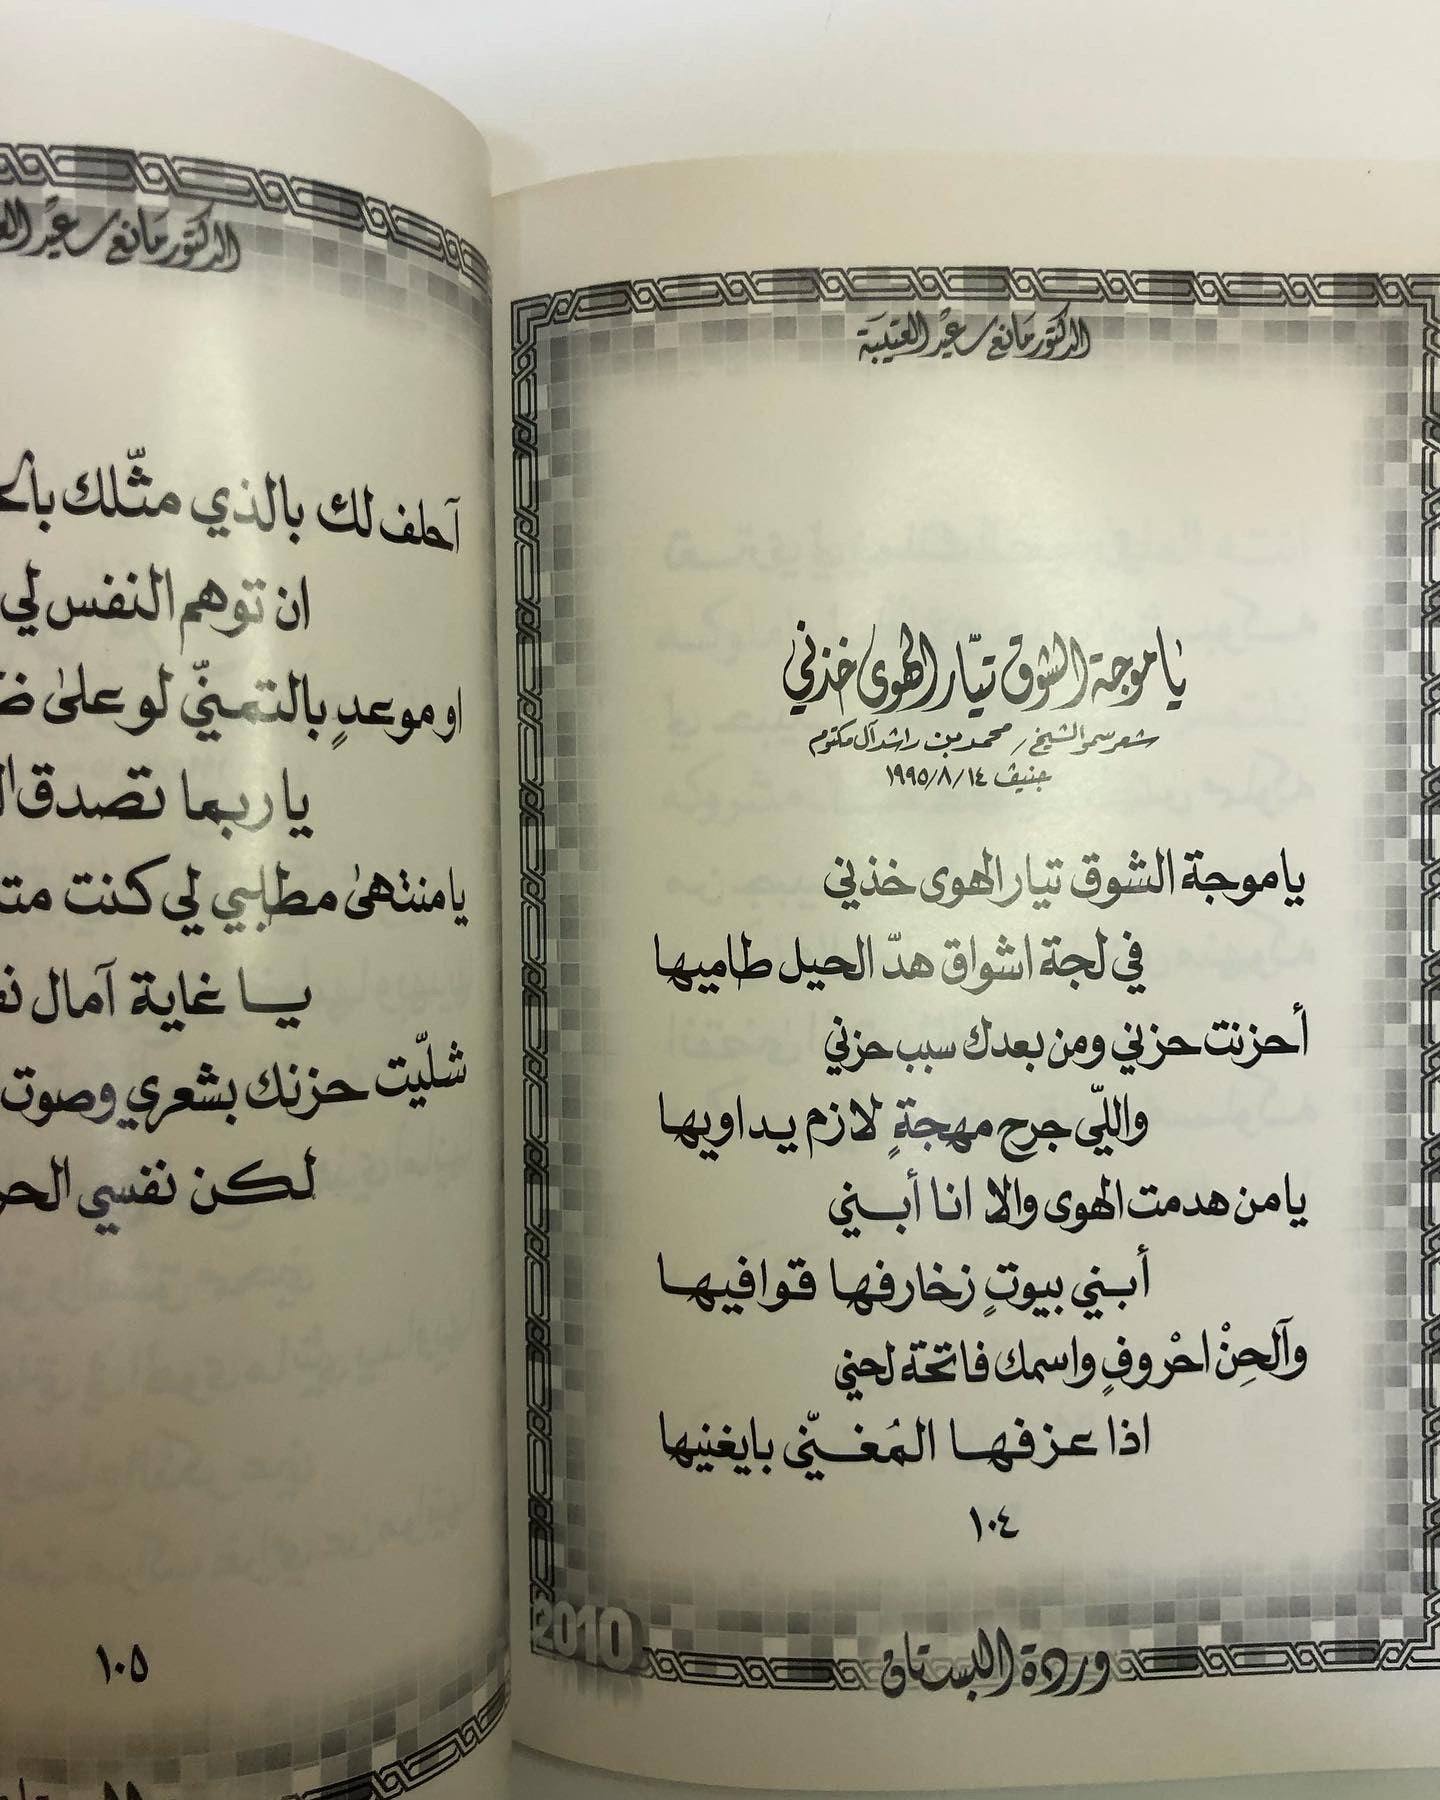 الدكتور مانع سعيد العتيبة
يا موجة الشوق تيّار الهوى خذني
شعر سمو الشيخ / محمد بن راشد آل مكتوم
جنيف ١٤/٨/١٩٩٥
يا موجة الشوق تيار الهوى خذني
في لجة اشواق هدّ الحيل طاميها
أحزنت حزني ومن بعدك سبب حزني
واللّي جرح مهجةٍ لازم يداويها
يا من هدمت الهوى والا انا أبـني
أبـني بيوتٍ زخارفها قوافيها
وآلحِنْ احْروفٍ واسمك فاتحة لحني
اذا عزفها المُغـنّي بايغنيها
١٠٤
2010
وردة البستان
الدكتور مانع سعيد
آحلف لك بالذي مثّلك
ان توهم النفس لي
او موعدٍ بالتمنّي لو على
يا ربما تصدق
يا منتهى مطلبي لي كنت
يـا غاية آمال
شليّت حزنك بشعري وصوت
لكن نفسي
١٠٥